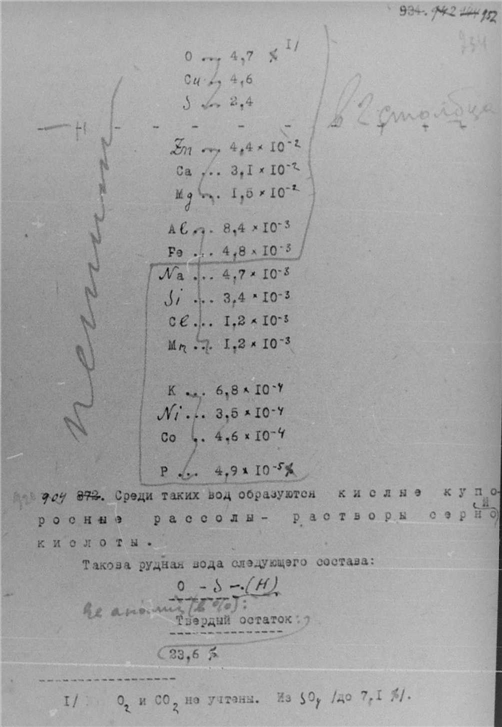 934. 942 944 952
934
O ... 4,7 % I/
Cu ... 4,6
S ... 2,4
в 2 столбца
- H - - - - - - - - -
Zn ... 4,4 × 10⁻²
Ca ... 3,1 × 10⁻²
Mg ... 1,5 × 10⁻²
Al ... 8,4 × 10⁻³
Fe ... 4,8 × 10⁻³
Na ... 4,7 × 10⁻³
Si ... 3,4 × 10⁻³
Cl ... 1,2 × 10⁻³
Mn ... 1,2 × 10⁻³
K ... 6,8 × 10⁻⁴
Ni ... 3,5 × 10⁻⁴
Co .. 4,6 × 10⁻⁴
P ... 4,9 × 10⁻⁵%
петит
904 872. Среди таких вод образуются кислые купо-
росные рассолы- растворы серной
кислоты.
Такова рудная вода следующего состава:
O - S -. (H)
Ее анализ (в %):
Твердый остаток:
23,6 %
I/ O₂ и CO₂ не учтены. Из SO₄ /до 7,1 %/.